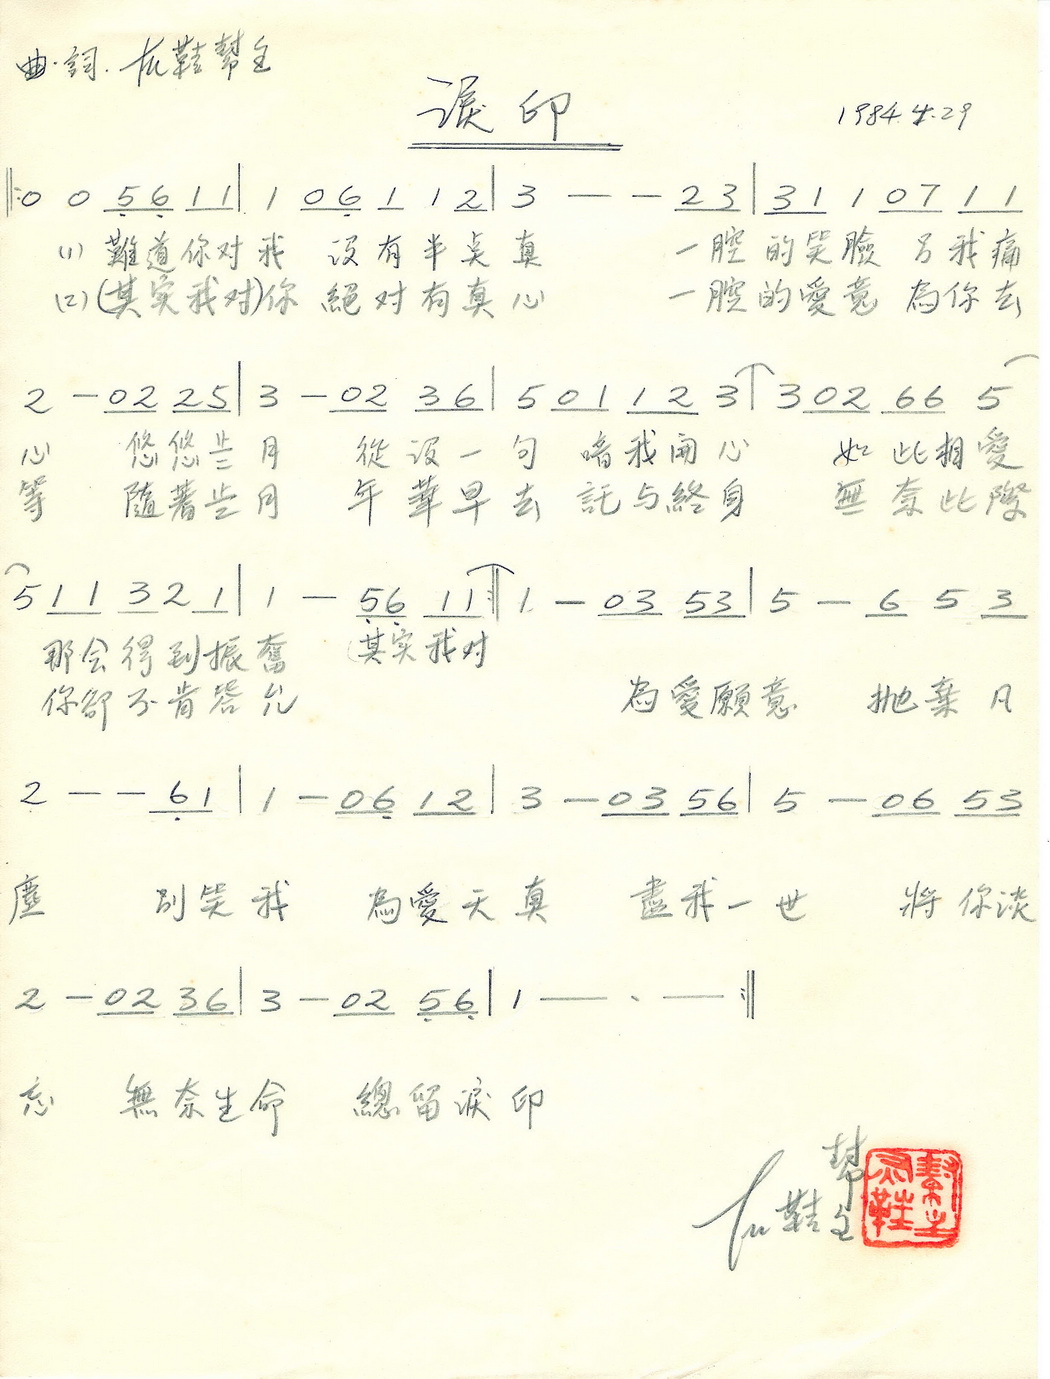 曲·詞. 左鞋幫主
淚印
1984.4.29
‖:0 0 56 11 | 1 06 1 1 2 | 3 — — 23 | 31 1 07 1 1
(1) 難道你对我 没有半点真 一腔的笑臉 另我痛
(2) (其实我对)你 絕对有真心 一腔的愛意 為你去
2 — 02 25 | 3 — 02 36 | 5 01 12 3 | 3 02 66 5
心 悠悠些月 從没一句 啱我開心 如此相愛
等 隨著些月 年華早去 託与終身 無奈此際
5 11 32 1 | 1 — 56 11 :‖ 1 — 03 53 | 5 — 6 5 3
那会得到振奮 (其实我对
你卻不肯答允 為愛願意 抛棄凡
2 — — 61 | 1 — 06 12 | 3 — 03 56 | 5 — 06 53
塵 別笑我 為愛天真 盡我一世 將你淡
2 — 02 36 | 3 — 02 56 | 1 — · — :‖
忘 無奈生命 總留淚印
左鞋幫主